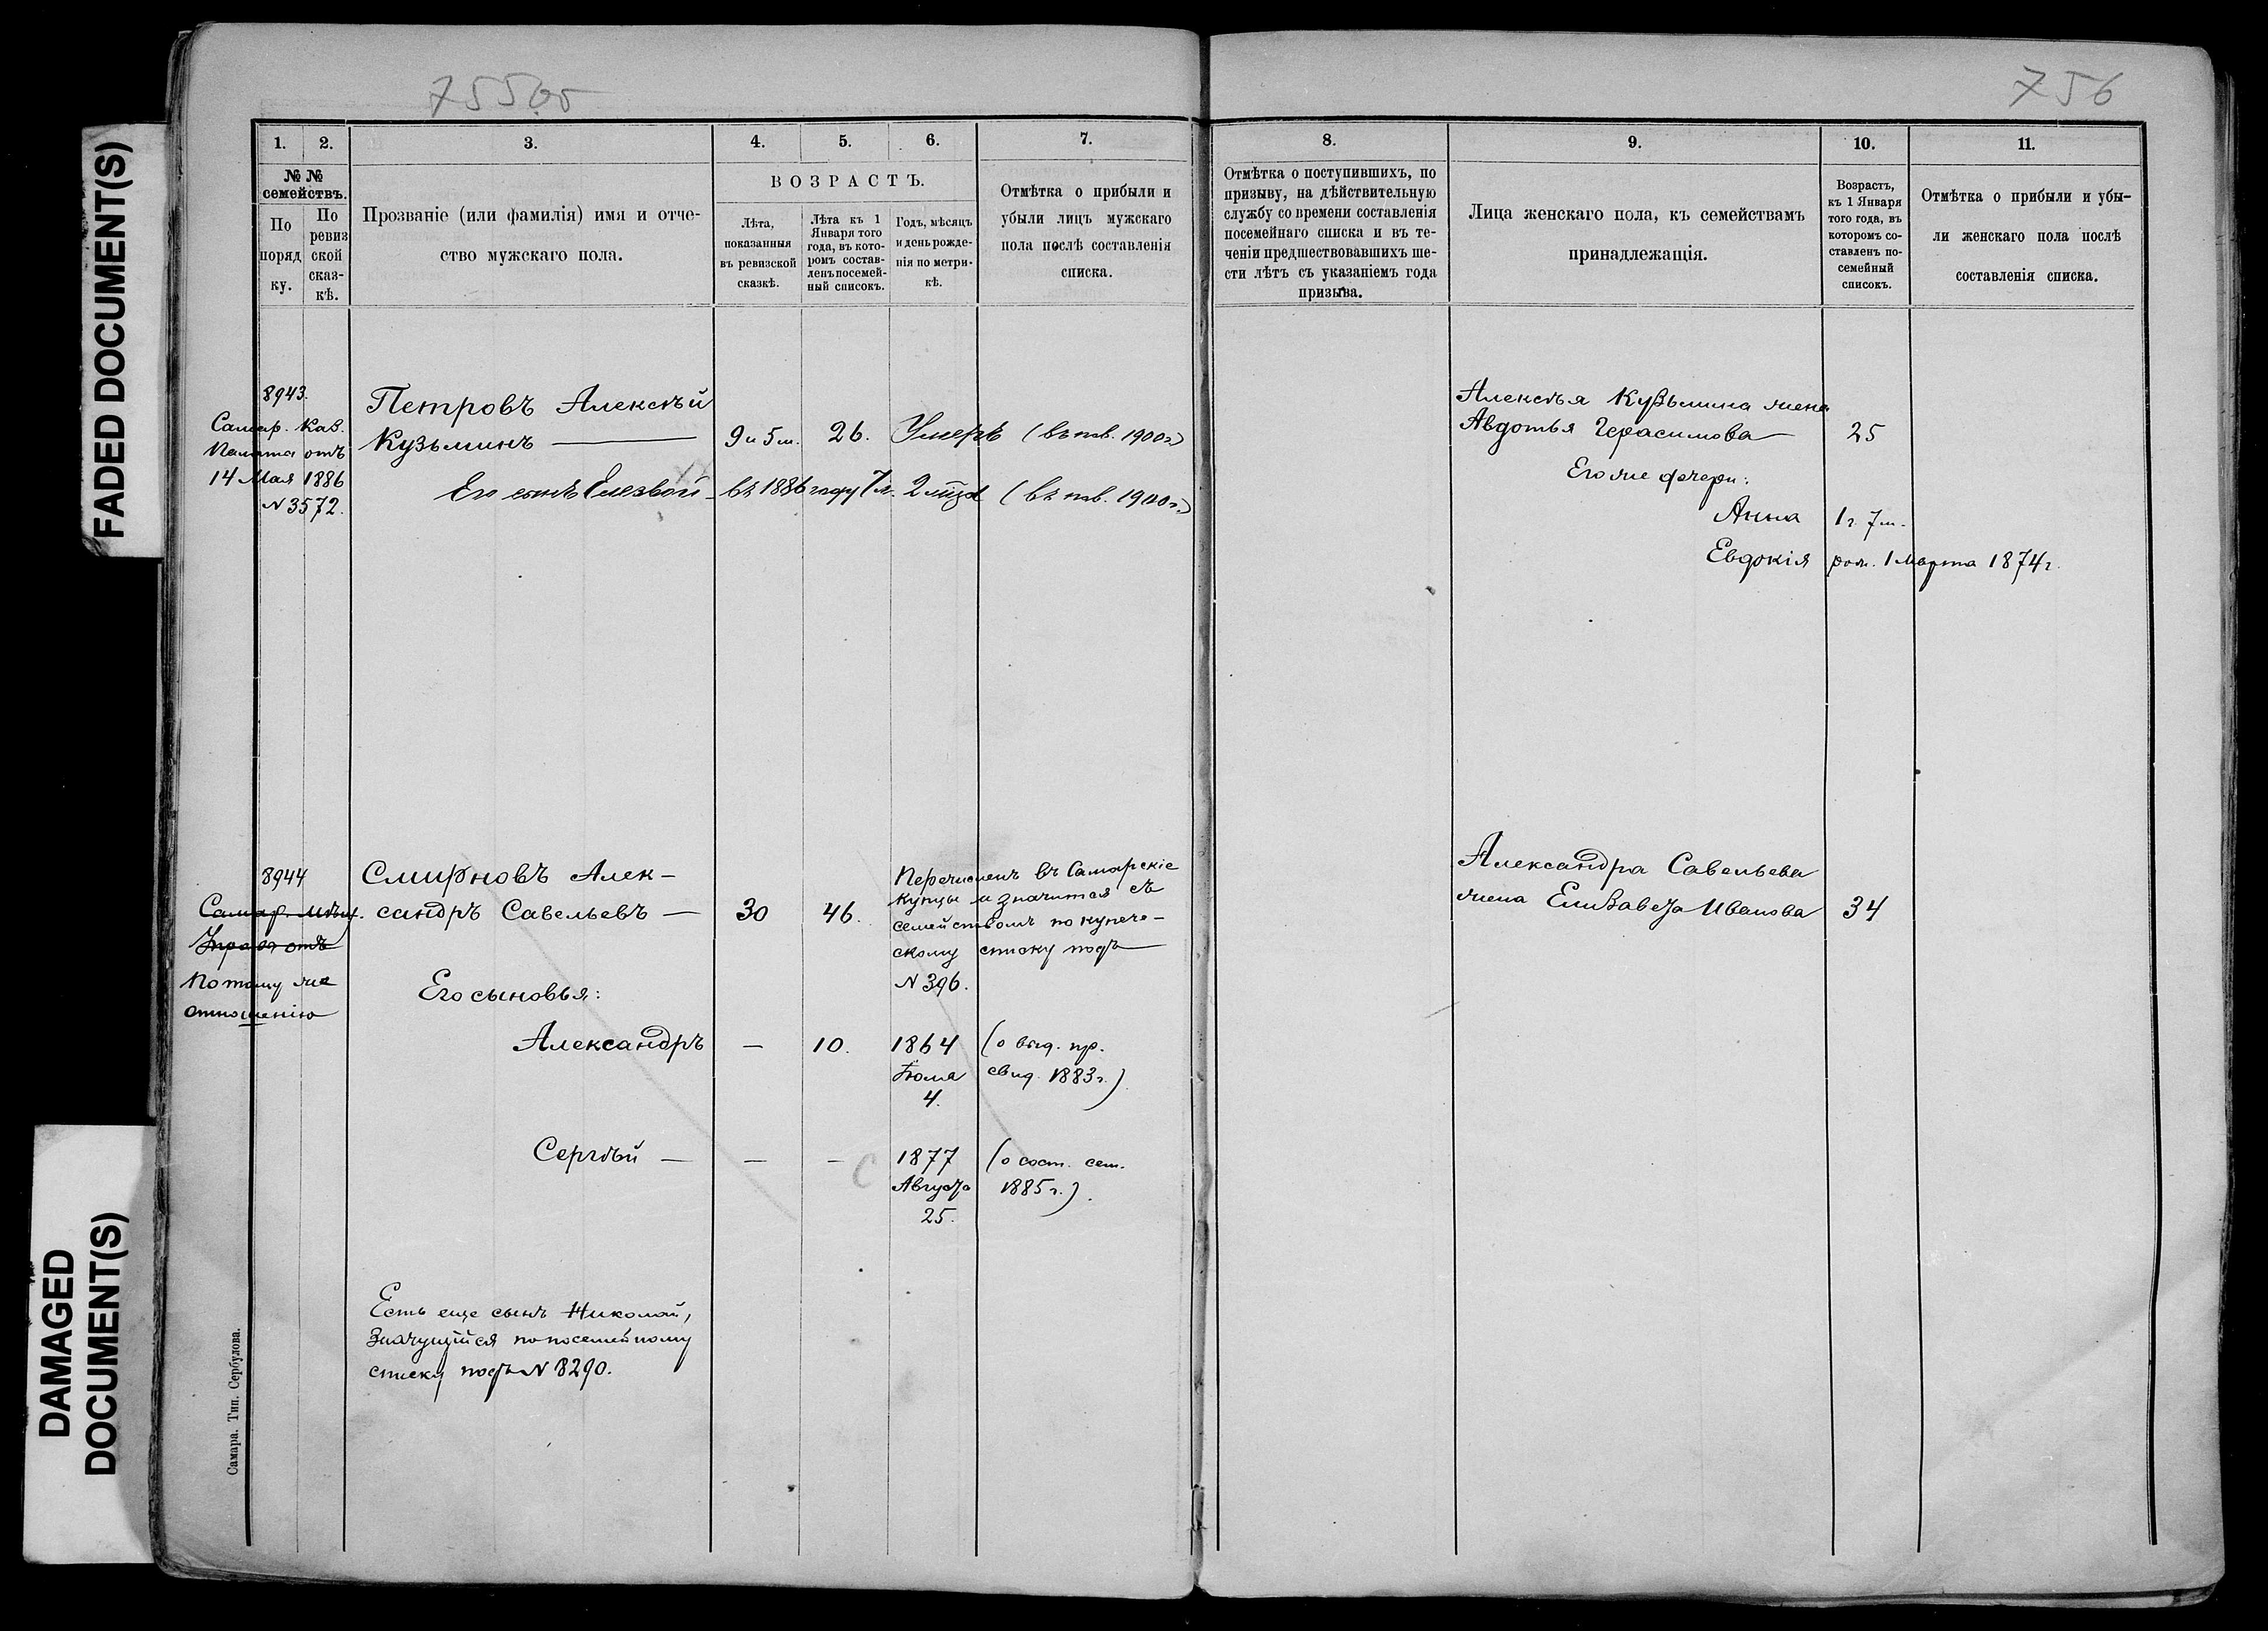 FADED DOCUMENT(S)
DAMAGED
DOCUMENT(S)
755об
1. 2. 3. 4. 5. 6. 7.
№ № семействъ.
По поряд ку.
По ревиз ской сказ- кѣ.
Прозваніе (или фамилія) имя и отче-
ство мужскаго пола.
ВОЗРАСТЪ.
Лѣта, показанныя въ ревизской сказкѣ.
Лѣта къ 1 Января того года, въ кото- ромъ состав- ленъ посемей- ный списокъ.
Годъ, мѣсяцъ и день рожде- нія по метри- кѣ.
Отмѣтка о прибыли и
убыли лицъ мужскаго
пола послѣ составленія
списка.
8943.
Самар. Каз.
Палата отъ
14 Мая 1886
N 3572.
Петровъ Алексѣй
Кузьминъ — 9 и 5 м. 26. Умеръ (въ пов. 1900 г.)
Его сынъ въ 1886 году 7 л. 2 мѣс. (въ пов. 1900 г.)
8944
Самар. мѣщ.
Управа отъ
По тому же
отношенію
Смирновъ Алек-
сандръ Савельевъ — 30 46.
Перечисленъ въ Самарскіе
купцы и значится съ
семействомъ по купече-
скому списку подъ —
N 396.
Его сыновья:
Александръ — 10. 1864 (о выд. пр.
Іюля свид. 1883 г.)
4.
Сергѣй — — — 1877 (о сост. сем.
Августа 1885 г.).
25.
Есть еще сынъ Николай,
значущійся по посемейному
списку подъ N 8290.
Самара. Тип. Сербулова.
756
8. 9. 10. 11.
Отмѣтка о поступившихъ, по
призыву, на дѣйствительную
службу со времени составленія
посемейнаго списка и въ те-
ченіи предшествовавшихъ ше-
сти лѣтъ съ указаніемъ года
призыва.
Лица женскаго пола, къ семействамъ
принадлежащія.
Возрастъ,
къ 1 Января
того года, въ
которомъ со-
ставленъ по-
семейный
списокъ.
Отмѣтка о прибыли и убы-
ли женскаго пола послѣ
составленія списка.
Алексѣя Кузьмина жена
Авдотья Герасимова — 25
Его же дочери:
Анна 1 г. 7 м.
Евдокія рож. 1 Марта 1874 г.
Александра Савельева
жена Елизавета Иванова 34